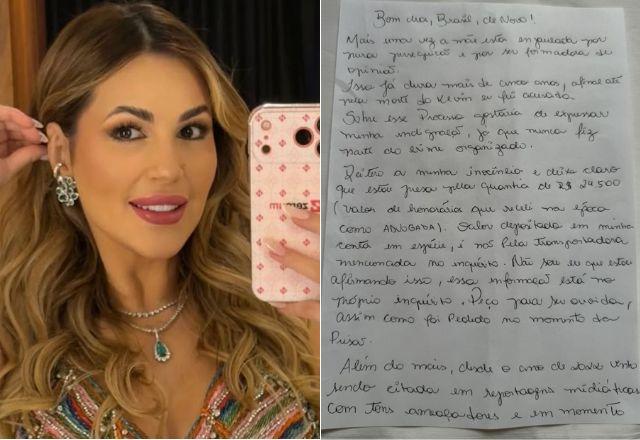 Bom dia, Brasil, de Novo!
Mais uma vez a mãe está enjaulada por
pura perseguição e por ser formadora de
opinião.
Isso já dura mais de cinco anos, afinal até
pela morte do Kevin eu fui acusada.
Sobre esse Processo gostaria de expressar
minha indignação, já que nunca fiz
parte do crime organizado.
Reitero a minha inocência e deixo claro
que estou presa pela quantia de R$ 24.500
(valor de honorário que recebi na época
como ADVOGADA). Valor depositado em minha
conta em espécie, e não pela transportadora
mencionada no inquérito. Não sou eu que estou
afirmando isso, essa informação está no
próprio inquérito. Peço para ser ouvida,
assim como foi Pedido no momento da
Prisão.
Além do mais, desde o ano de venho
sendo citada em reportagens midiáticas
com tons ameaçadores e em momento